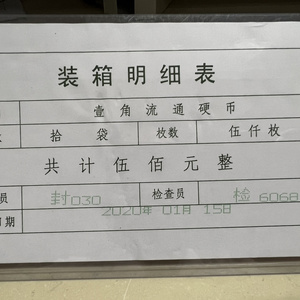 装箱明细表
壹角流通硬币
拾 袋 枚数 伍仟枚
共计伍佰元整
员 封030 检查员 检6068
期 2020年 01月 15日